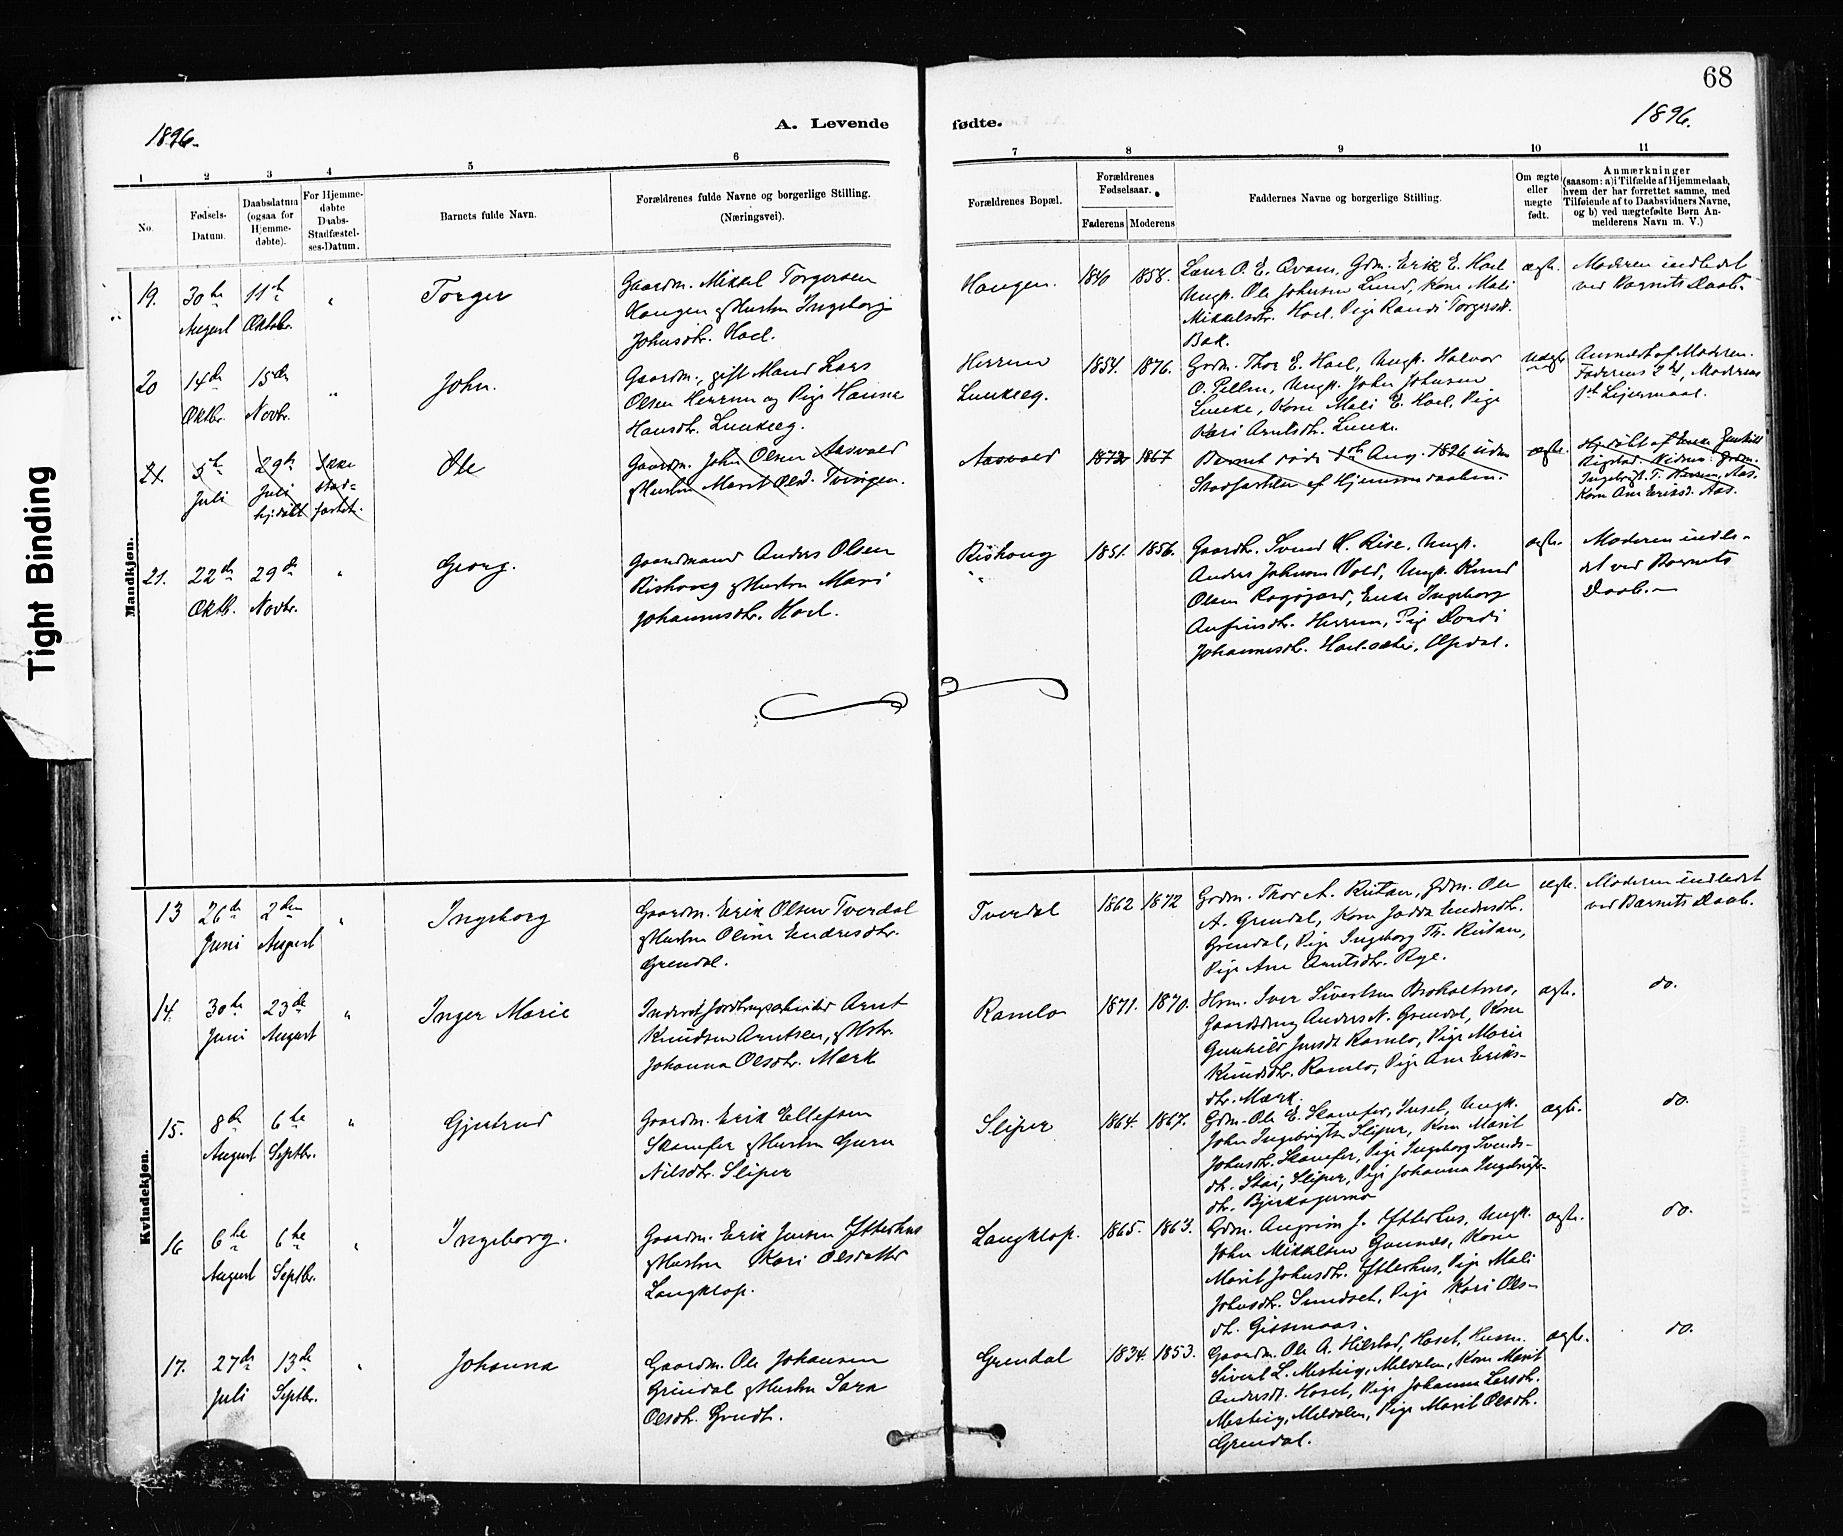 68
1896.
A. Levende
fødte.
1896.
1
2
3
4
5
6
7
8
9
10
11
No.
Fødsels-
Datum.
Daabsdatum
(ogsaa for
Hjemme-
døbte).
For Hjemme-
døbte
Daabs-
Stadfæstel-
ses-Datum.
Barnets fulde Navn.
Forældrenes fulde Navne og borgerlige Stilling.
(Næringsvei).
Forældrenes Bopæl.
Forældrenes
Fødselsaar.
Faderens
Moderens
Faddernes Navne og borgerlige Stilling.
Om ægte
eller
uægte
født.
Anmærkninger
(saasom: a) i Tilfælde af Hjemmedaab,
hvem der har forrettet samme, med
Tilføiende af to Daabsvidners Navne,
og b) ved uægtefødte Børn An-
melderens Navn m. V.)
Tight Binding
Mandkjøn.
19.
30te
August
11te
Oktbr.
"
Torger
Gaardm. Mikkel Torgersen
Haugen & Hustru Ingeborg
Johnsdtr. Hoel.
Haugen.
1840
1858.
Lærer O. E. Qvam, Gdm. Erik E. Hoel
Ungk. Ole Johnsen Lund, Kone Mali
Mikkelsdtr. Hoel, Pige Randi Torgersdt.
Bak.
ægte.
Moderen indledet
ved Barnets Daab.
20
14de
Oktbr.
15de
Novbr.
"
John.
Gaardm., gift Mand Lars
Olsen Herrem og Pige Hanna
Hansdtr. Lunkeeg.
Herrem
Lunkeeg.
1854.
1876.
Gdm. Thor E. Hoel, Ungk. Halvor
O. Ungk. John Johnsen
Kone Mali E. Hoel, Pige
Kari Arntsdtr.
uægte
Anmeldt af Moderen.
Faderens 2det, Moderens
1ste Leiermaal.
21.
5te
Juli
29de
Juli
hj.døbt
Ikke
stad-
fæstet.
Ole
Gaardm. John Olsen Aasvold
& Hustru Marit Olsd. Tvingen.
Aasvold
1873
1867
Barnet døde Aug. 1896 uden
Stadfæstelse af Hjemmedaaben.
ægte.
Hjdøbt af Enke Gunhild
Kone Ane Eriksd. Aas.
21.
22de
Oktb.
29de
Novbr.
"
Georg.
Gaardmand Anders Olsen
Rishaug & Hustru Mari
Johannesdtr. Hoel.
Rishaug
1851.
1856.
Gaardbr. Svend H. Rise, Ungk.
Anders Johnsen Vold, Ungk. Knud
Olsen Enke Ingeborg
Anfinsdtr. Herrem, Pige Dordi
Johannesdtr. Hoel-sæter, Opdal.
ægte.
Moderen indle-
det ved Barnets
Daab.
Kvindekjøn.
13
26de
Juni
2den
August
"
Ingeborg
Gaardm. Erik Olsen Tverdal
& Hustru Oline Endresdtr.
Grendal.
Tverdal
1862
1872
Grdm. Thor A. Rutan, Gdm. Ole
A. Grendal, Kone Jodda Endresdtr.
Grendal, Pige Ingeborg Th. Rutan,
Pige Ane Arntsdtr. Rye.
ægte.
Moderen indledet
ved Barnets Daab.
14.
30te
Juni
23de
August
"
Inger Marie
Inderst Jordbrugsarbeider Arnt
Knudsen Arntsen, & Hstr.
Johanna Olsdtr. Mærk
Ramlo
1871.
1870.
Hrm. Iver Sivertsen Broholtmo,
Gaarddreng Anders N. Grendal, Kone
Gunhild Jonsdt. Ramlo, Pige Marie
Knudsdtr. Ramlo, Pige Ane Eriks-
dtr. Mærk.
ægte.
do.
15.
8de
August
6te
Septbr.
"
Gjertrud
Gaardm. Erik Ellefsen
Skamfer & Hustru Guru
Nilsdtr. Sliper
Sliper
1864.
1867.
Gdm. Ole E. Skamfer, Inset, Ungk.
John Ingebrigtsen Sliper, Kone Marit
Johnsdtr. Skamfer, Pige Ingeborg Svends-
dtr. Stai, Sliper, Pige Johanna Ingebrigts-
dtr. Bjerkagermo
ægte.
do.
16
6te
August
6te
Septbr.
"
Ingeborg.
Gaardm. Erik Jensen Ytterhus
& Hustru Kari Olsdatter
Langklop.
Langklop.
1865.
1863.
Gdm. Angrim J. Ytterhus, Ungk.
John Mikkelsen Gunnes, Kone
Marit Johnsdtr. Ytterhus, Pige Mali
Johnsdtr. Sundset, Pige Kari Ols-
dtr. Gissmaas.
ægte.
do.
17.
27de
Juli
13de
Septbr.
"
Johanna
Gaardm. Ole Johansen
Grindal & Hustru Sara
Olsdtr. Grndl.
Grendal
1834.
1853.
Gaardm. Ole A. Hilstad, Hoset, Husm.
Sivert L. Mesteig, Meldalen, Kone Marit
Andersdt. Hoset, Pige Johanna Larsdtr.
Mesteig, Meldalen, Pige Marit Olsdtr.
Grendal.
ægte.
do.